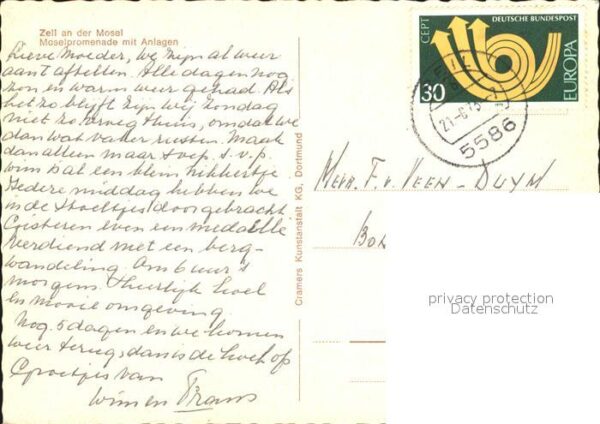 Zell an der Mosel
Moselpromenade mit Anlagen
Lieve Moeder, we zijn al weer
aan 't aftellen. Alle dagen nog
zon en warm weer gehad. Als
het zo blijft zijn wij Zondag
niet zo vroeg thuis, omdat we
dan wat vaker rusten. Maak
dan alleen maar soep s.v.p.
Wim is al een klein nikkertje
Iedere middag hebben we
in de stoeltjes doorgebracht
Gisteren even een medaille
verdiend met een berg-
wandeling. Om 6 uur 's
morgens. Heerlijk koel
en mooie omgeving
Nog 5 dagen en we komen
weer terug, dan is de koek op
Groetjes van
Wim en Frans
Cramers Kunstanstalt KG, Dortmund
DEUTSCHE BUNDESPOST
CEPT
EUROPA
30
5586
Mevr. F. v. Veen-Duym
privacy protection
Datenschutz